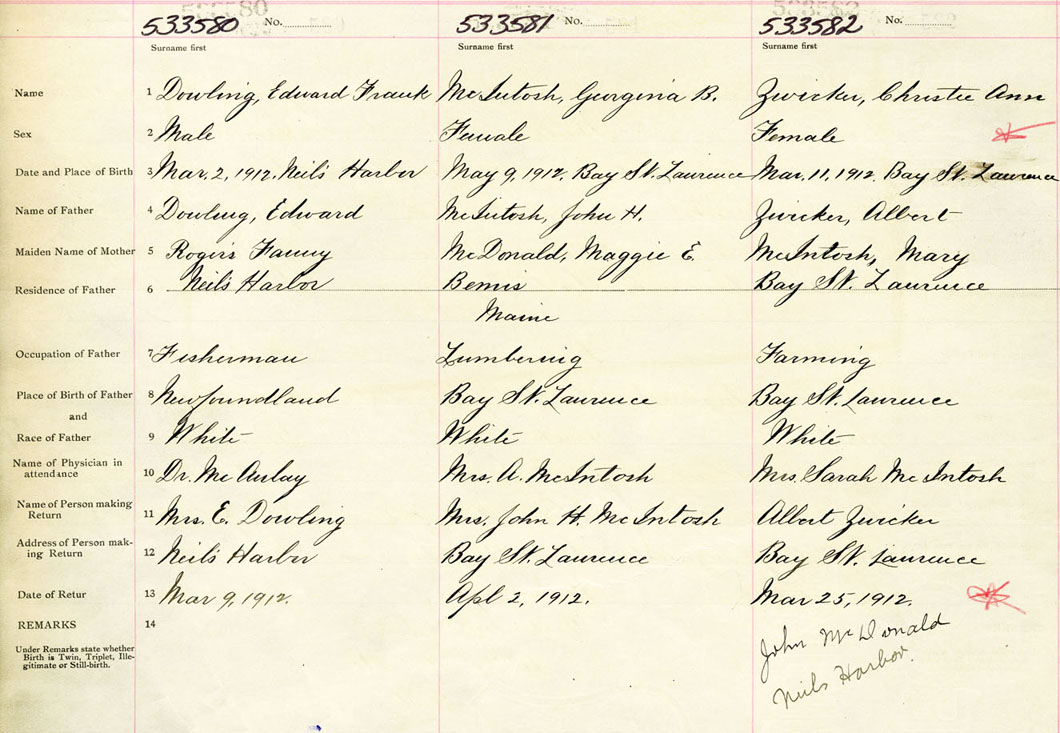 533580 No. 533581 No. 533582 No.
Surname first Surname first Surname first
Name 1 Dowling, Edward Frank McIntosh, Georgina B. Zwicker, Christie Ann
Sex 2 Male Female Female
Date and Place of Birth 3 Mar. 2, 1912. Neil's Harbor May 9, 1912. Bay St. Laurence Mar. 11, 1912. Bay St. Laurence
Name of Father 4 Dowling, Edward McIntosh, John H. Zwicker, Albert
Maiden Name of Mother 5 Rogers Fanny McDonald, Maggie E. McIntosh, Mary
Residence of Father 6 Neil's Harbor Bemis Bay St. Laurence
Maine
Occupation of Father 7 Fisherman Lumbering Farming
Place of Birth of Father 8 Newfoundland Bay St. Laurence Bay St. Laurence
and
Race of Father 9 White White White
Name of Physician in
attendance 10 Dr. McAulay Mrs. A. McIntosh Mrs. Sarah McIntosh
Name of Person making
Return 11 Mrs. E. Dowling Mrs. John H. McIntosh Albert Zwicker
Address of Person mak-
ing Return 12 Neil's Harbor Bay St. Laurence Bay St. Laurence
Date of Retur 13 Mar 9, 1912. Apl 2, 1912. Mar 25, 1912.
REMARKS 14
Under Remarks state whether
Birth is Twin, Triplet, Ille-
gitimate or Still-birth.
John McDonald
Neils Harbor.